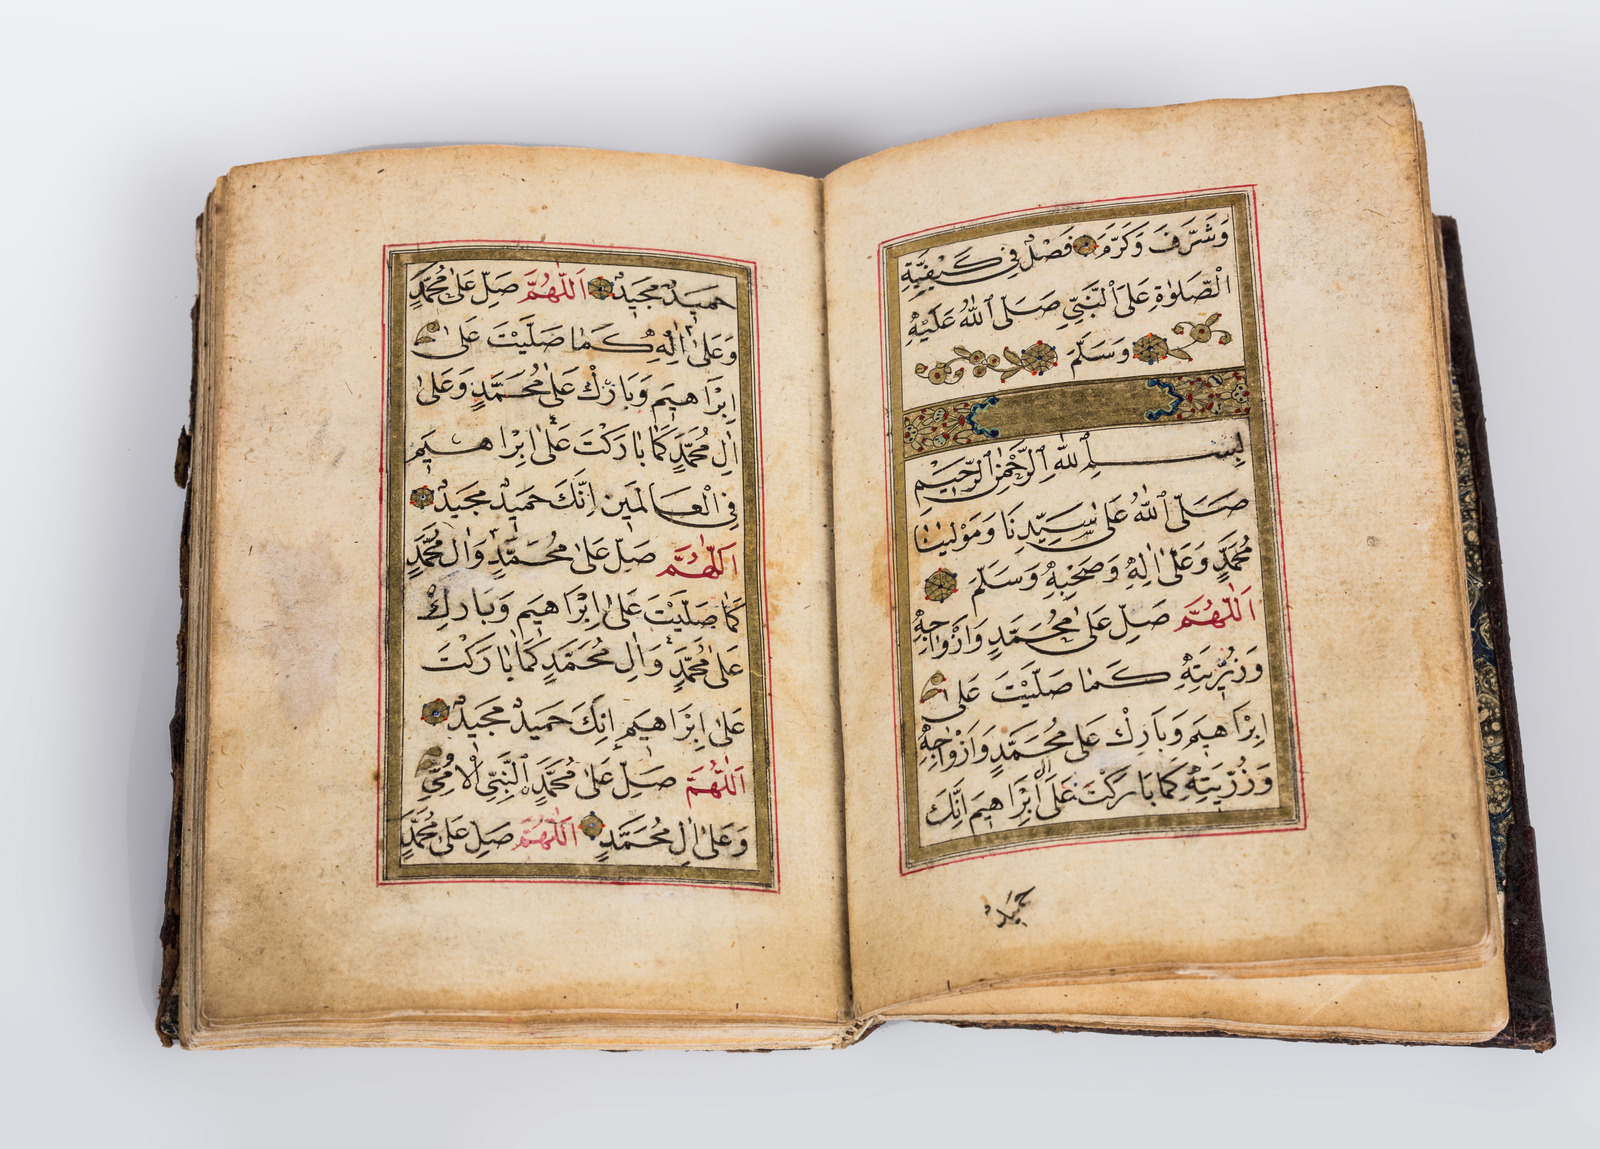 وَشَرَّفَ وَكَرَّمَ فَصْلٌ فِي كَيْفِيَّةِ
الْصَّلٰوةِ عَلَى اَلنَّبِيِّ صَلَّى اَللّٰهُ عَلَيْهِ
وَسَلَّمَ
بِسْمِ اَللّٰهِ اِلرَّحْمٰنِ اِلرَّحِيمِ
صَلَّى اَللّٰهُ عَلٰى سَيِّدِنَا وَمَوْلٰينَا
مُحَمَّدٍ وَعَلٰى اٰلِهٖ وَصَحْبِهٖ وَسَلَّمَ
اَللّٰهُمَّ صَلِّ عَلٰى مُحَمَّدٍ وَاَزْوَاجِهٖ
وَذُرِّيَتِهٖ كَمَا صَلَّيْتَ عَلٰى
اِبْرَاهِيمَ وَبَارِكْ عَلٰى مُحَمَّدٍ وَاَزْوَاجِهٖ
وَذُرِّيَتِهٖ كَمَا بَارَكْتَ عَلٰى اٰلِ اِبْرَاهِيمَ اِنَّكَ
حَمِيدٌ
حَمِيدٌ مَجِيدٌ اَللّٰهُمَّ صَلِّ عَلٰى مُحَمَّدٍ
وَعَلٰى اٰلِهٖ كَمَا صَلَّيْتَ عَلٰى
اِبْرَاهِيمَ وَبَارِكْ عَلٰى مُحَمَّدٍ وَعَلٰى
اٰلِ مُحَمَّدٍ كَمَا بَارَكْتَ عَلٰى اِبْرَاهِيمَ
فِي الْعَالَمِينَ اِنَّكَ حَمِيدٌ مَجِيدٌ
اَللّٰهُمَّ صَلِّ عَلٰى مُحَمَّدٍ وَاٰلِ مُحَمَّدٍ
كَمَا صَلَّيْتَ عَلٰى اِبْرَاهِيمَ وَبَارِكْ
عَلٰى مُحَمَّدٍ وَاٰلِ مُحَمَّدٍ كَمَا بَارَكْتَ
عَلٰى اِبْرَاهِيمَ اِنَّكَ حَمِيدٌ مَجِيدٌ
اَللّٰهُمَّ صَلِّ عَلٰى مُحَمَّدٍ اَلنَّبِيِّ الْاُمِّيِّ
وَعَلٰى اٰلِ مُحَمَّدٍ اَللّٰهُمَّ صَلِّ عَلٰى مُحَمَّدٍ